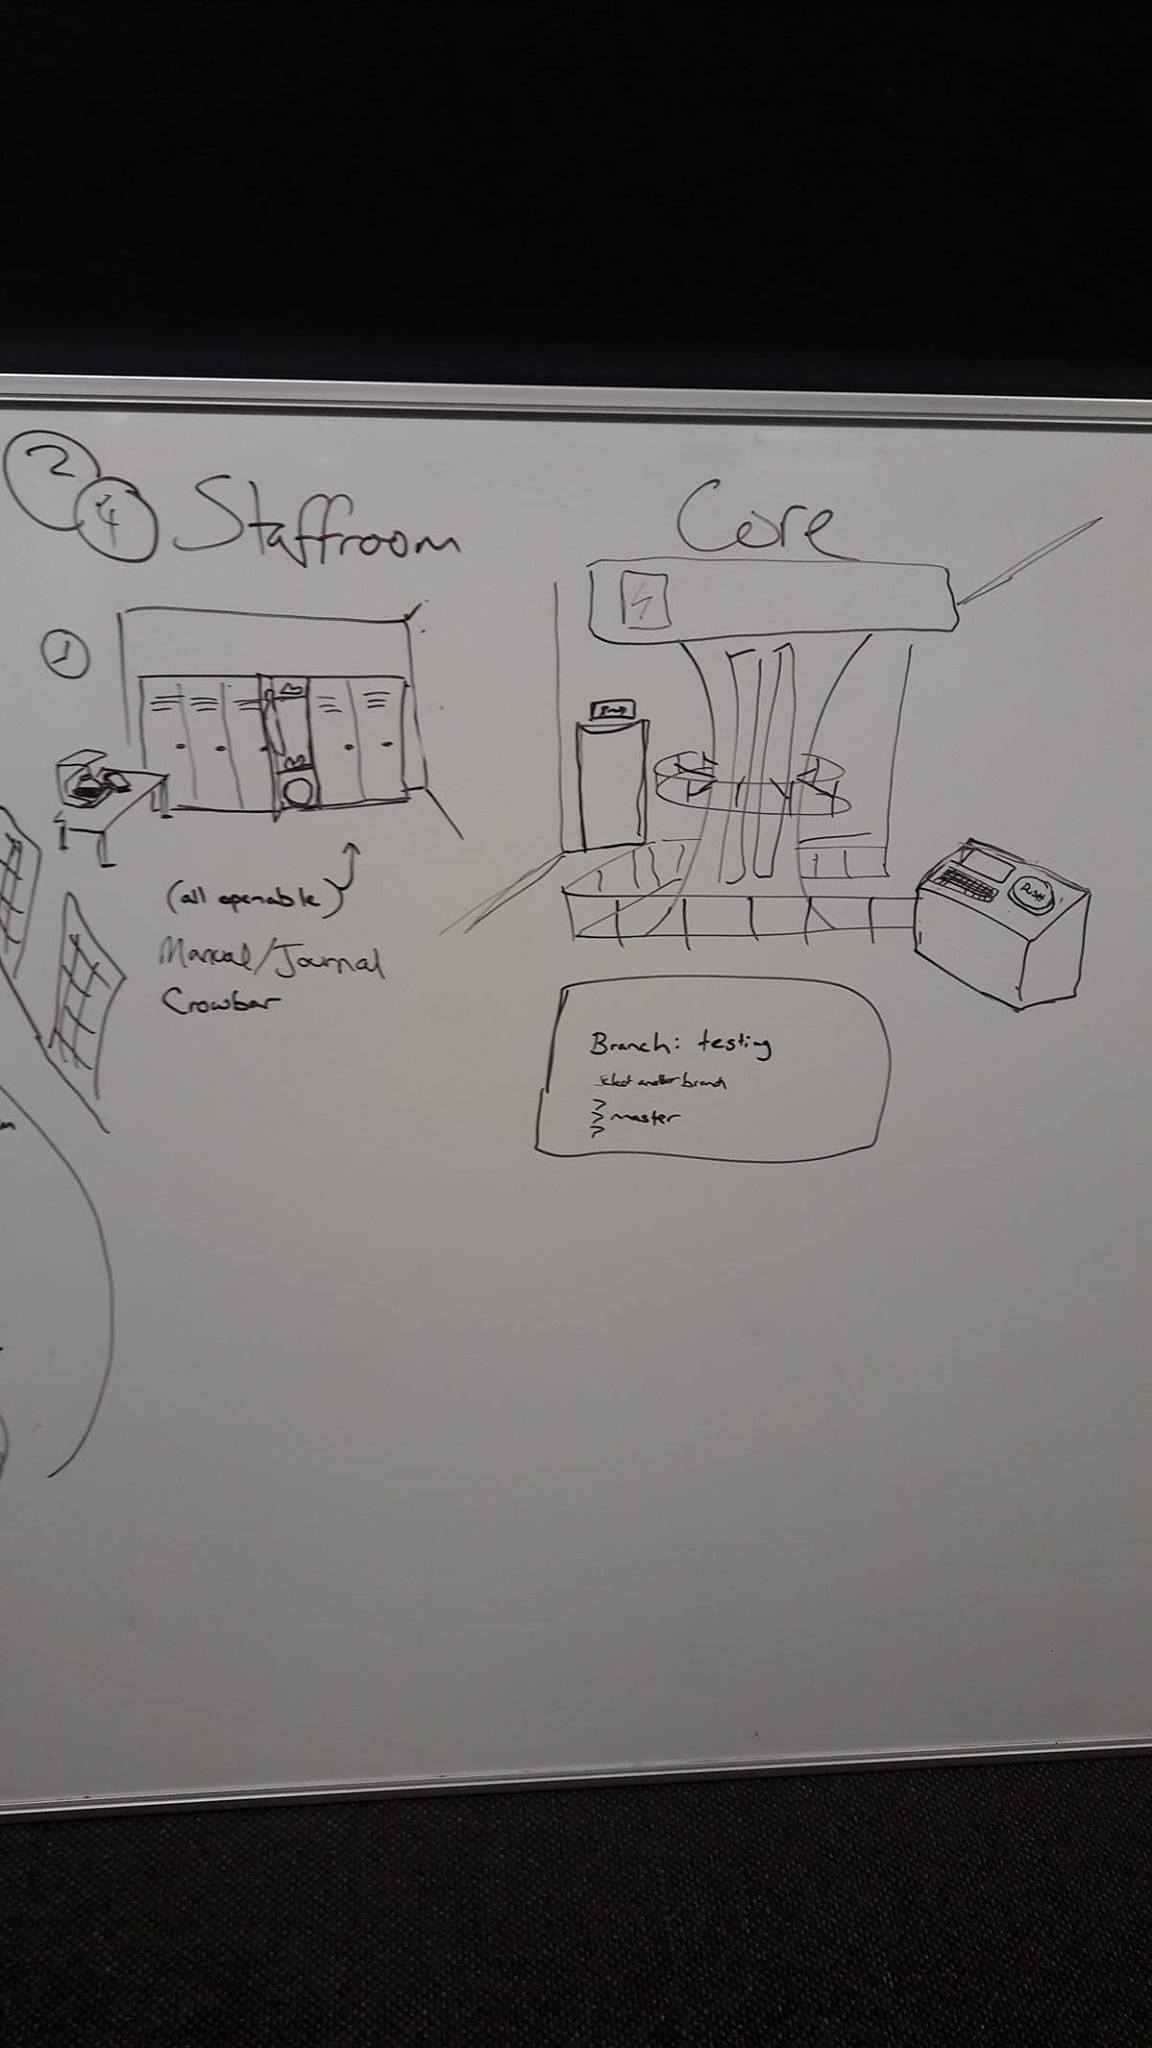 2
4
Staffroom
1
(all openable)
Manual/Journal
Crowbar
Core
PUSH
Branch: testing
select another branch
>
> master
>